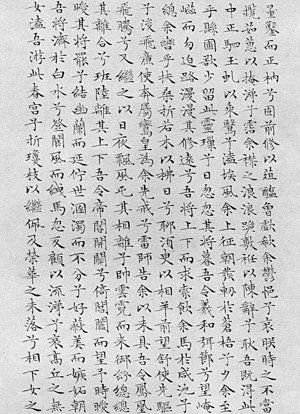 量鑿而正枘兮固前修以菹醢曾歔欷余鬱悒兮哀朕時之不當
攬茹蕙以掩涕兮霑余襟之浪浪跪敷衽以陳辭兮耿吾既得此
中正駟玉虬以乘鷖兮溘埃風余上征朝發軔於蒼梧兮夕余至
乎縣圃欲少留此靈瑣兮日忽忽其將暮吾令羲和弭節兮望崦
嵫而勿迫路漫漫其修遠兮吾將上下而求索飲余馬於咸池兮
總余轡乎扶桑折若木以拂日兮聊須臾以相羊前望舒使先驅
兮後飛廉使奔屬鸞皇為余先戒兮雷師告余以未具吾令鳳凰
飛騰兮又繼之以日夜飄風屯其相離兮帥雲霓而來御紛總總
其離合兮班陸離其上下吾令帝閽開關兮倚閶闔而望予時曖
曖其將罷兮結幽蘭而延佇世溷濁而不分兮好蔽美而嫉妒朝
吾將濟於白水兮登閬風而緤馬忽反顧以流涕兮哀高丘之無
女溘吾游此春宮兮折瓊枝以繼佩及榮華之未落兮相下女之